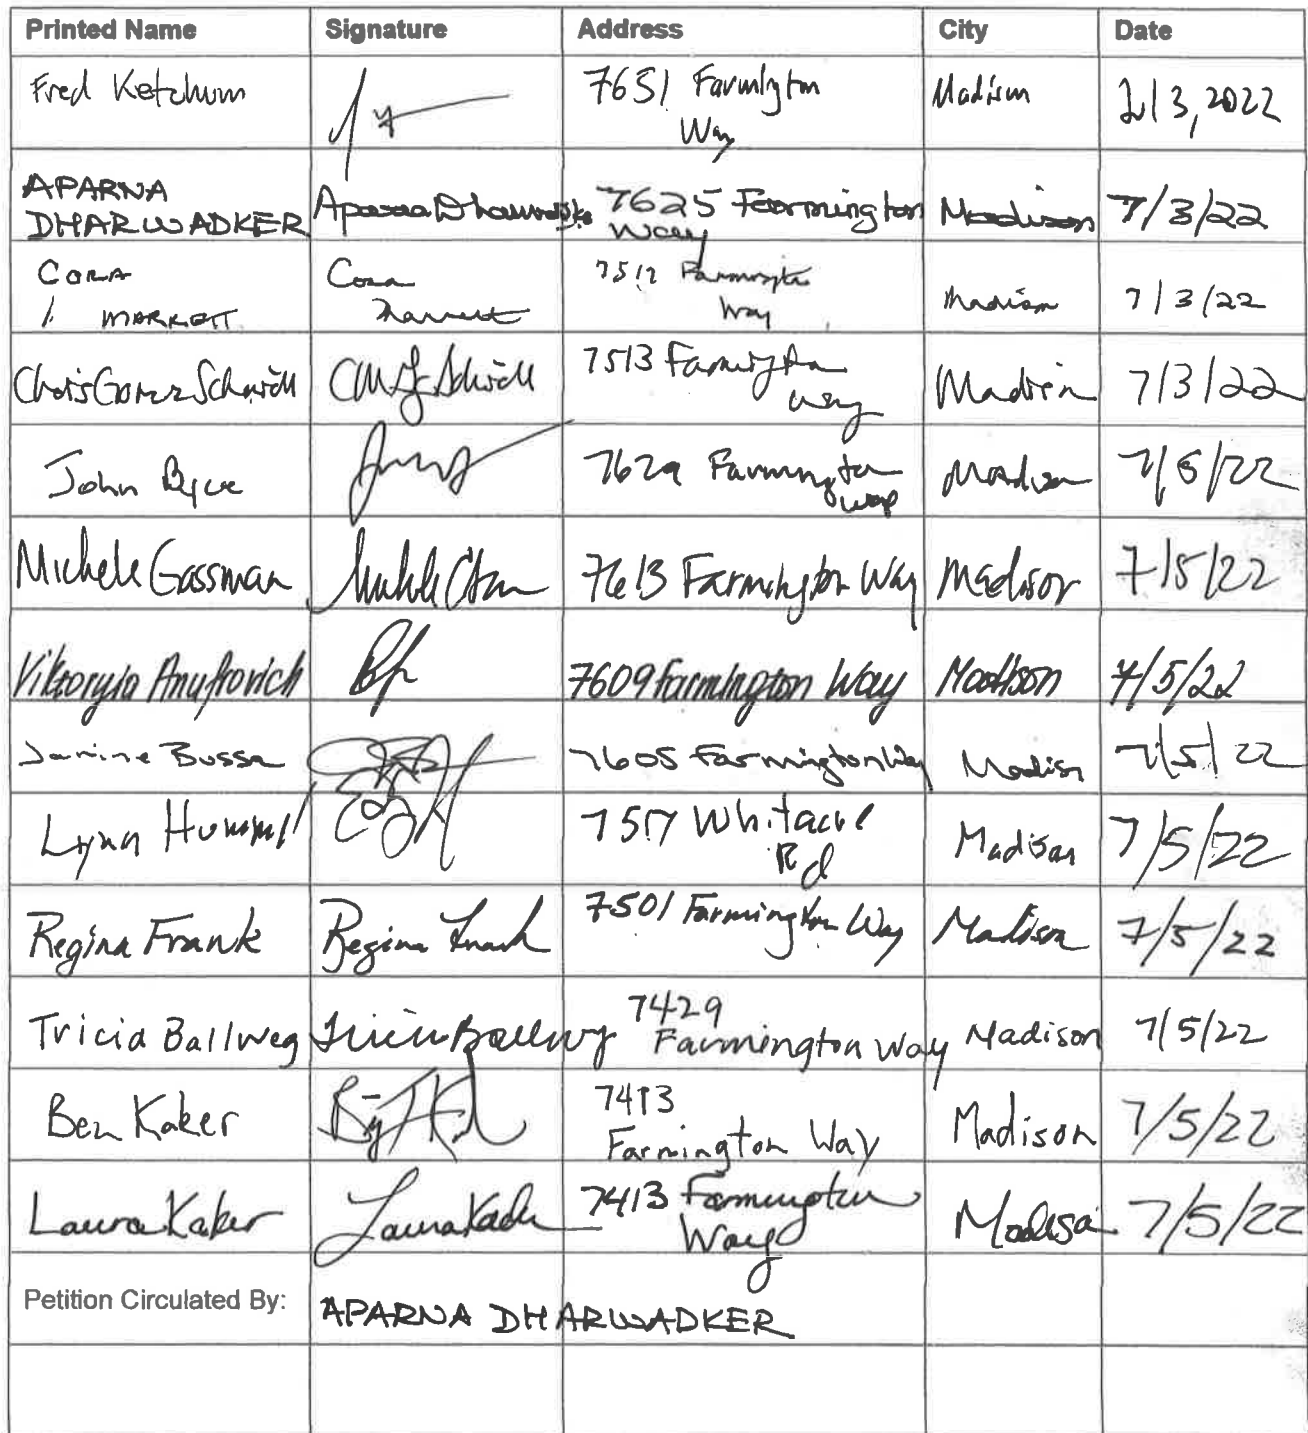 Printed Name Signature Address City Date
Fred Ketchum 7651 Farmington Way Madison 3, 2022
APARNA DHARWADKER Aparna Dharwadker 7625 Farmington Way Madison 7/3/22
CORA MARRETT Cora Marrett 7517 Farmington Way Madison 7/3/22
Chris Gomez Schmidt 7513 Farmington Way Madison 7/3/22
John 7629 Farmington Way Madison 7/5/22
Michele Gassman 7613 Farmington Way Madison 7/5/22
Viktoryia Anufrovich 7609 Farmington Way Madison 7/5/22
Janine Bussa 7605 Farmington Way Madison 7/5/22
Lynn Hummel 7517 Whitacre Rd Madison 7/5/22
Regina Frank Regina Frank 7501 Farmington Way Madison 7/5/22
Tricia Ballweg Tricia Ballweg 7429 Farmington Way Madison 7/5/22
Ben Kaker 7413 Farmington Way Madison 7/5/22
Laura Kaker Laura Kaker 7413 Farmington Way Madison 7/5/22
Petition Circulated By: APARNA DHARWADKER